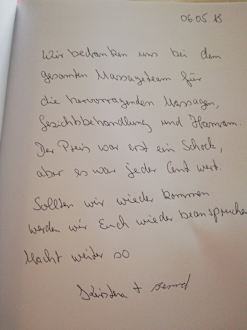 06.05.18
Wir bedanken uns bei dem
gesamten Massageteam für
die hervorragenden Massagen,
Gesichtsbehandlung und Hamam.
Der Preis war erst ein Schock,
aber es war jeder Cent wert.
Sollten wir wieder kommen
werden wir Euch wieder beanspruchen
Macht weiter so
+